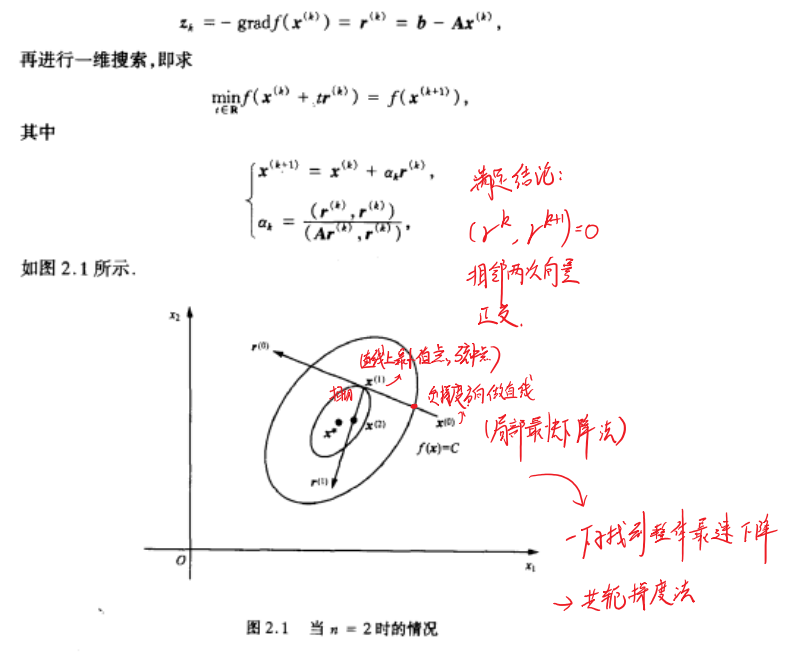 z_k = − grad f(x^(k)) = r^(k) = b − Ax^(k),
再进行一维搜索,即求
min_{t∈R} f(x^(k) + tr^(k)) = f(x^(k+1)),
其中
x^(k+1) = x^(k) + α_k r^(k),
α_k = (r^(k), r^(k)) / (Ar^(k), r^(k)),
满足结论:
(r^k, r^{k+1})=0
相邻两次向量
正交.
如图 2.1 所示.
x₂
r^(0)
(直线上最小值点,弦中点)
x^(1)
相切
负梯度方向做直线
x^(0)
x*
x^(2)
f(x)=C
(局部最快下降法)
r^(1)
一下子找到整体最速下降
→ 共轭梯度法
O
x₁
图 2.1 当 n = 2 时的情况